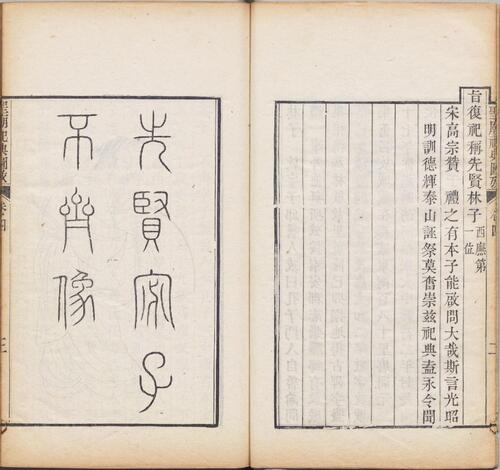 聖廟祀典圖攷 卷四 二
旨復祀稱先賢林子
西廡第
一位
宋高宗贊 禮之有本子能啟問大哉斯言光昭
明訓德輝泰山誣祭莫奮崇兹祀典盍永令聞
先賢宓子
不齊像
聖廟祀典圖攷 卷四 三